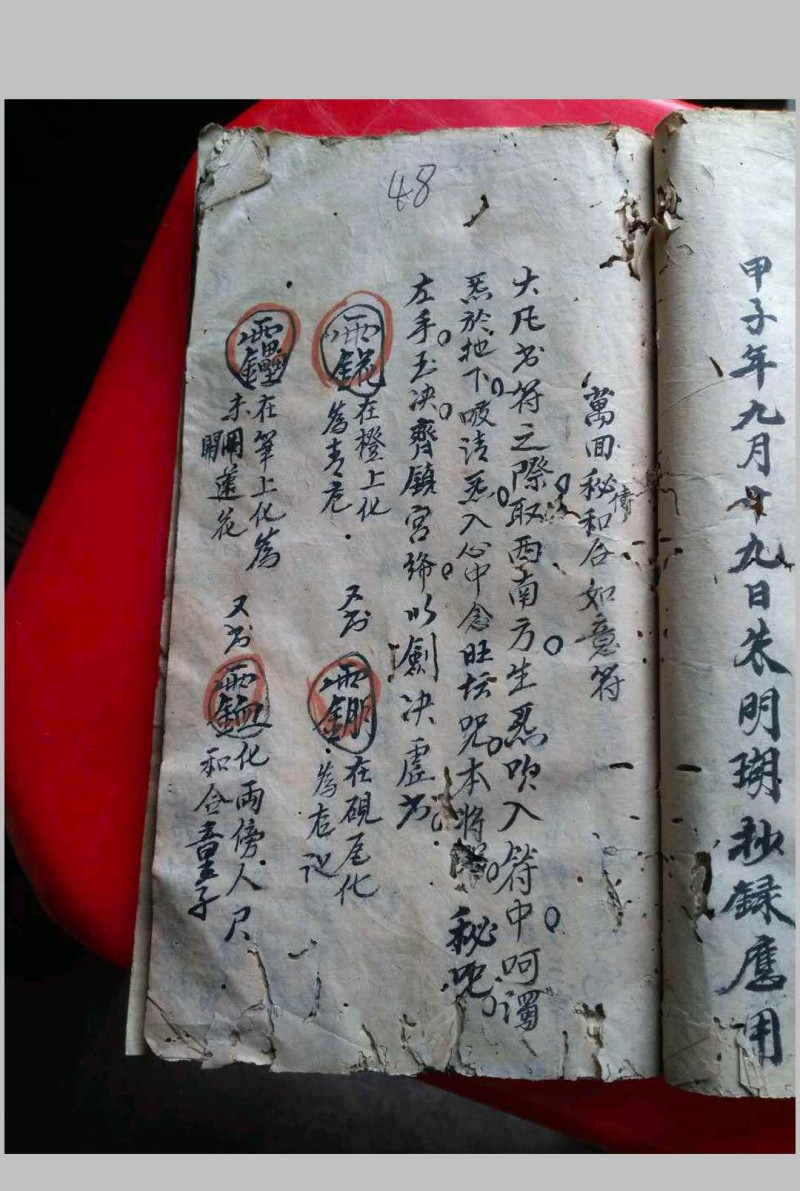 甲子年九月十九日朱明瑚抄録應用
48
萬回秘和合如意符
大凡书符之際取西南方生炁吹入符中呵濁
炁於地下吸清炁入心中念旺坛咒本将 秘咒
左手玉决齊鎮宮 以劍决虚书
在橙上化
為青 
又书
在硯尾化
為 
在筆上化為
未開蓮花
又书
化兩傍人
和合童子